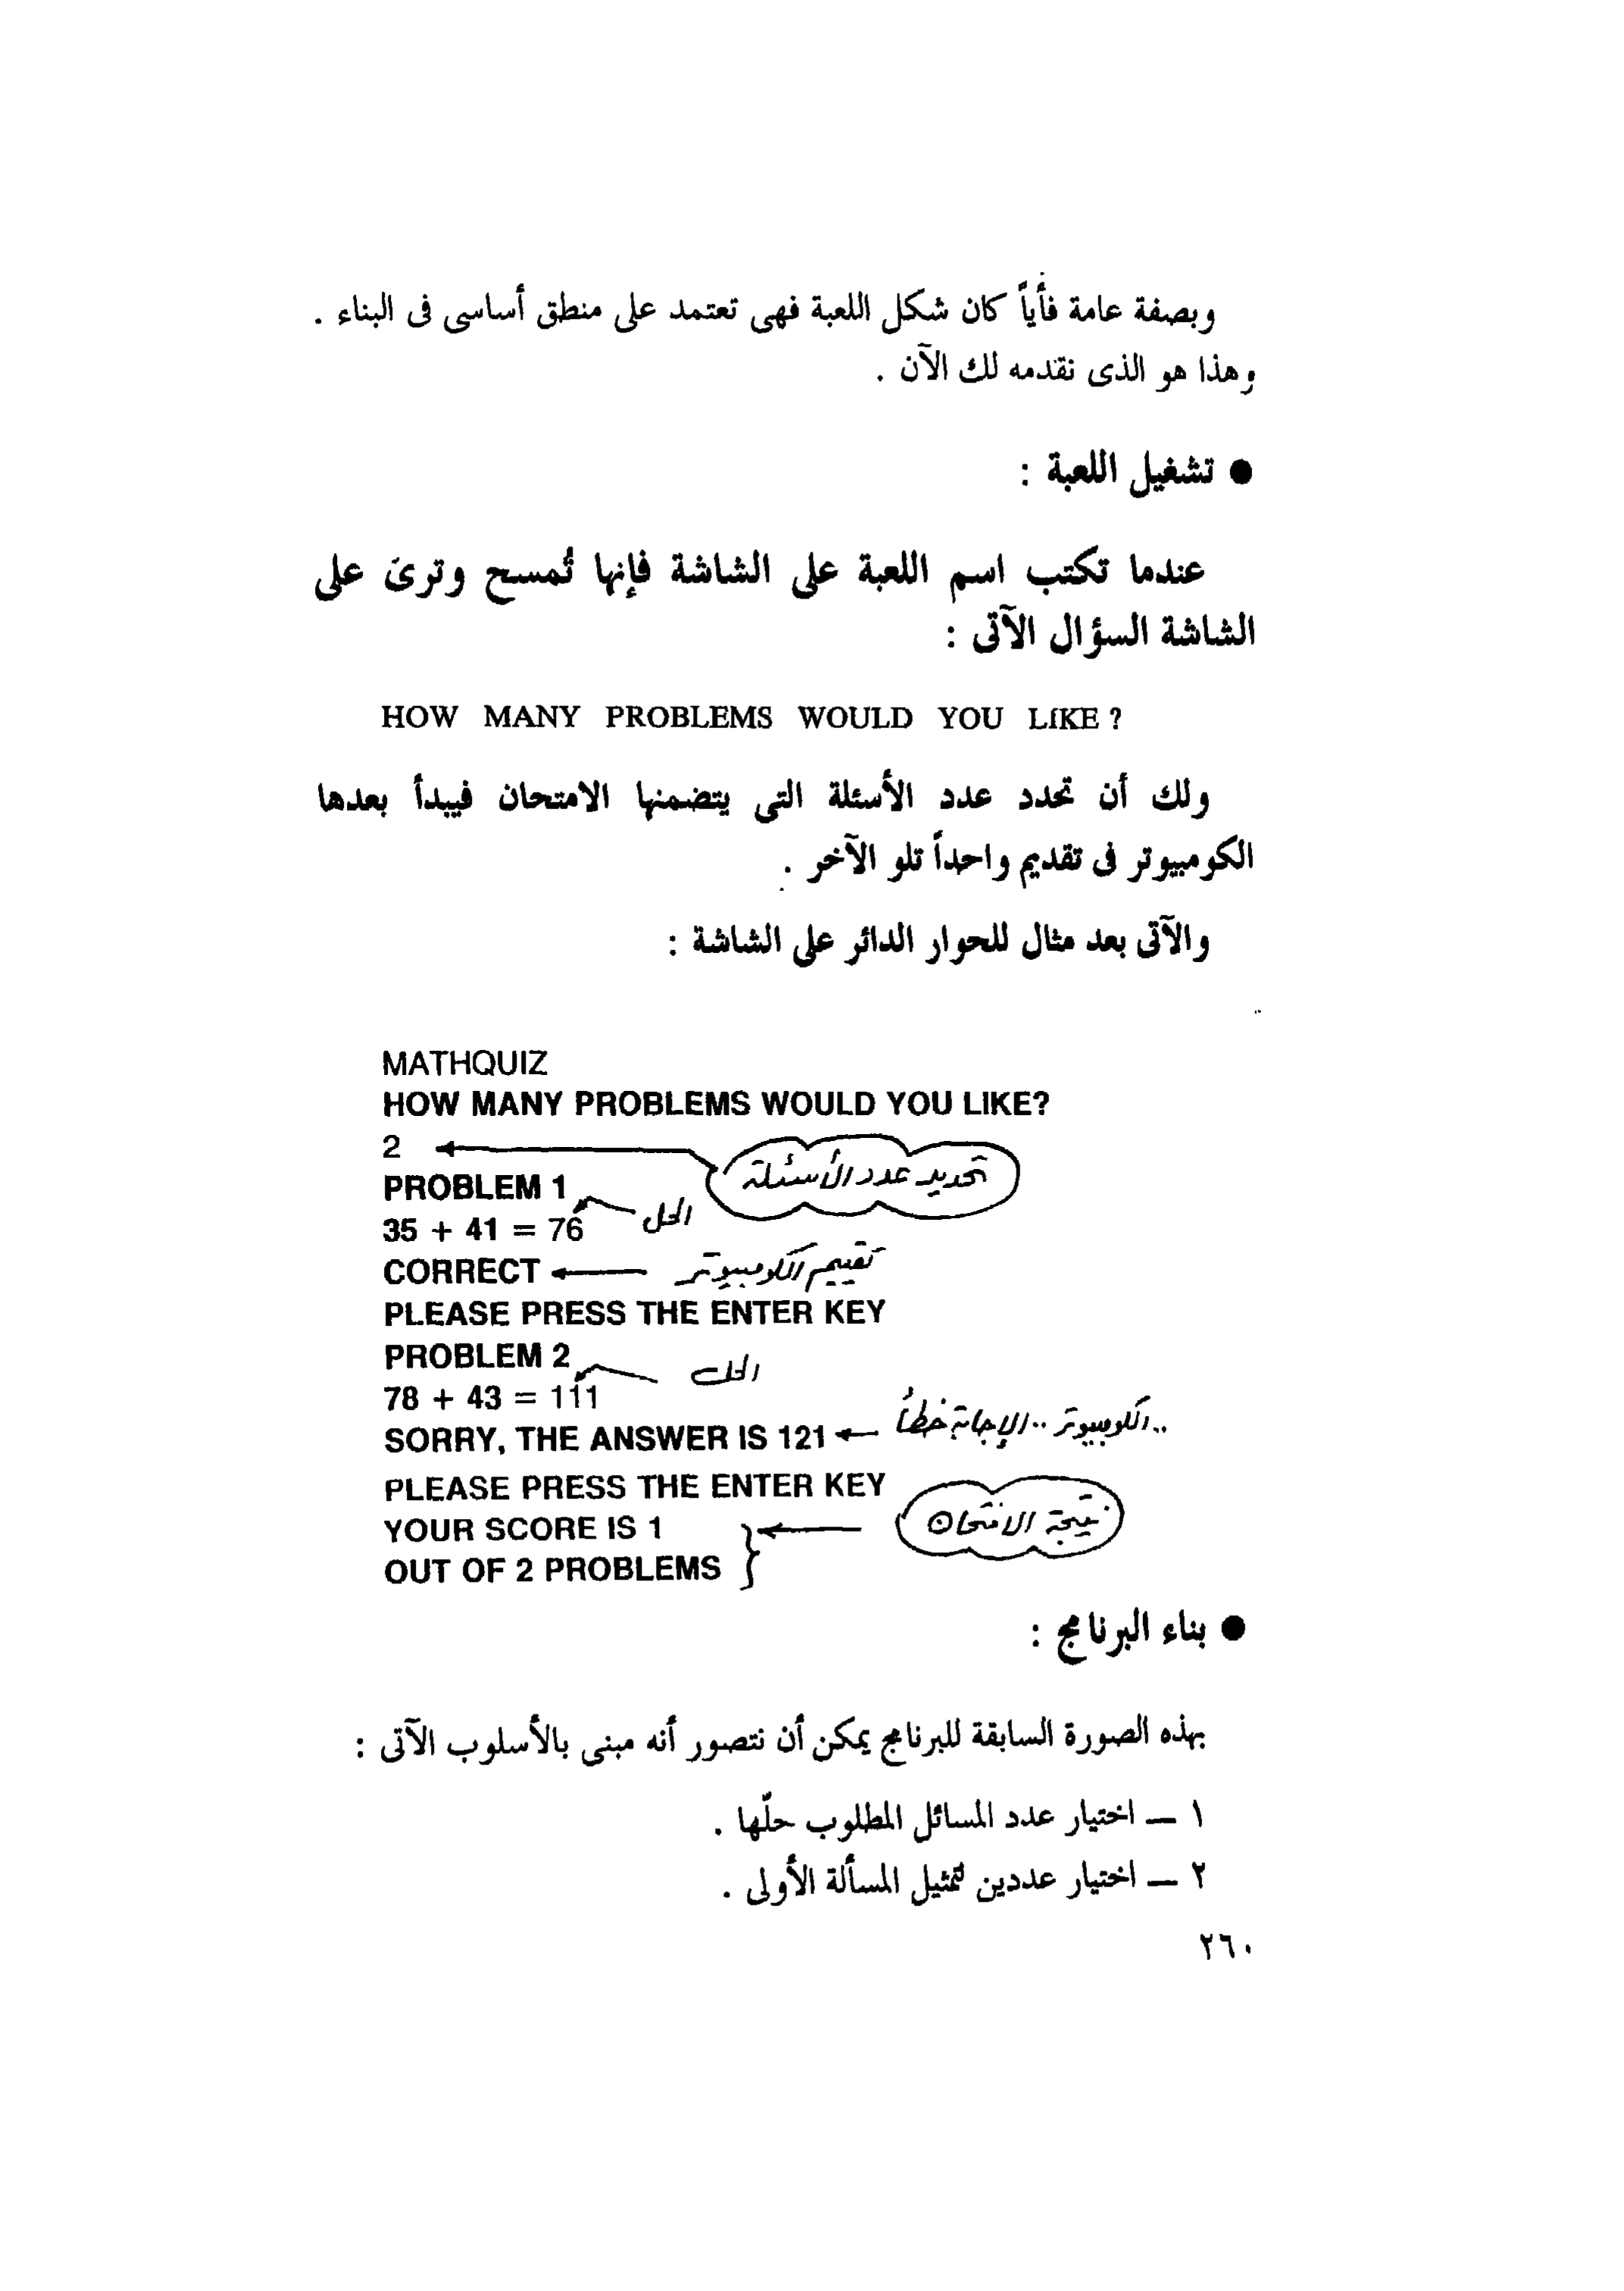 وبصفة عامة فأياً كان شكل اللعبة فهى تعتمد على منطق أساسى فى البناء .
وهذا هو الذى نقدمه لك الآن .
● تشغيل اللعبة :
عندما تكتب اسم اللعبة على الشاشة فإنها تُمسح وترى على
الشاشة السؤال الآتى :
HOW MANY PROBLEMS WOULD YOU LIKE ?
ولك أن تحدد عدد الأسئلة التى يتضمنها الامتحان فيبدأ بعدها
الكومبيوتر فى تقديم واحداً تلو الآخر .
والآتى بعد مثال للحوار الدائر على الشاشة :
MATHQUIZ
HOW MANY PROBLEMS WOULD YOU LIKE?
2 تحديد عدد الأسئلة
PROBLEM 1
35 + 41 = 76 الحل
CORRECT تقييم الكومبيوتر
PLEASE PRESS THE ENTER KEY
PROBLEM 2 الحل
78 + 43 = 111
SORRY, THE ANSWER IS 121 .. الكومبيوتر .. الإجابة خطأ
PLEASE PRESS THE ENTER KEY
YOUR SCORE IS 1 نتيجة الامتحان
OUT OF 2 PROBLEMS
● بناء البرنامج :
بهذه الصورة السابقة للبرنامج يمكن أن نتصور أنه مبنى بالأسلوب الآتى :
١ — اختيار عدد المسائل المطلوب حلّها .
٢ — اختيار عددين لتمثيل المسألة الأولى .
٢٦٠